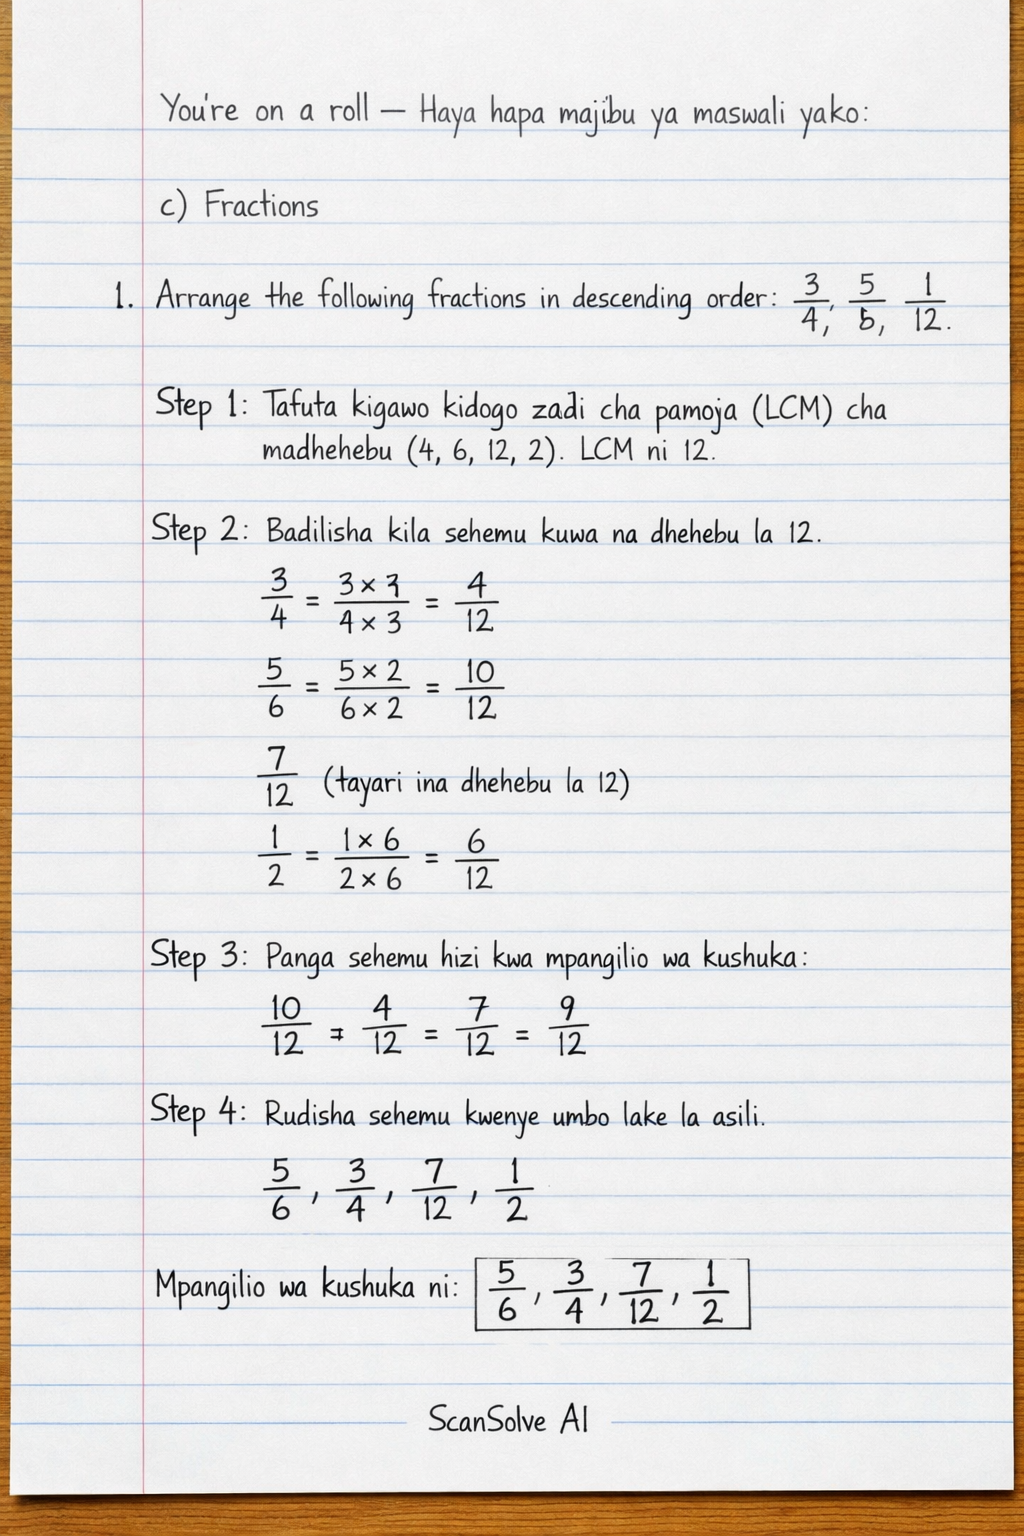 You're on a roll — Haya hapa majibu ya maswali yako:
c) Fractions
1. Arrange the following fractions in descending order: 3/4, 5/6, 1/12.
Step 1: Tafuta kigawo kidogo zadi cha pamoja (LCM) cha
madhehebu (4, 6, 12, 2). LCM ni 12.
Step 2: Badilisha kila sehemu kuwa na dhehebu la 12.
3/4 = 3 × 3/4 × 3 = 4/12
5/6 = 5 × 2/6 × 2 = 10/12
7/12 (tayari ina dhehebu la 12)
1/2 = 1 × 6/2 × 6 = 6/12
Step 3: Panga sehemu hizi kwa mpangilio wa kushuka:
10/12 = 4/12 = 7/12 = 9/12
Step 4: Rudisha sehemu kwenye umbo lake la asili.
5/6, 3/4, 7/12, 1/2
Mpangilio wa kushuka ni: 5/6, 3/4, 7/12, 1/2
ScanSolve AI